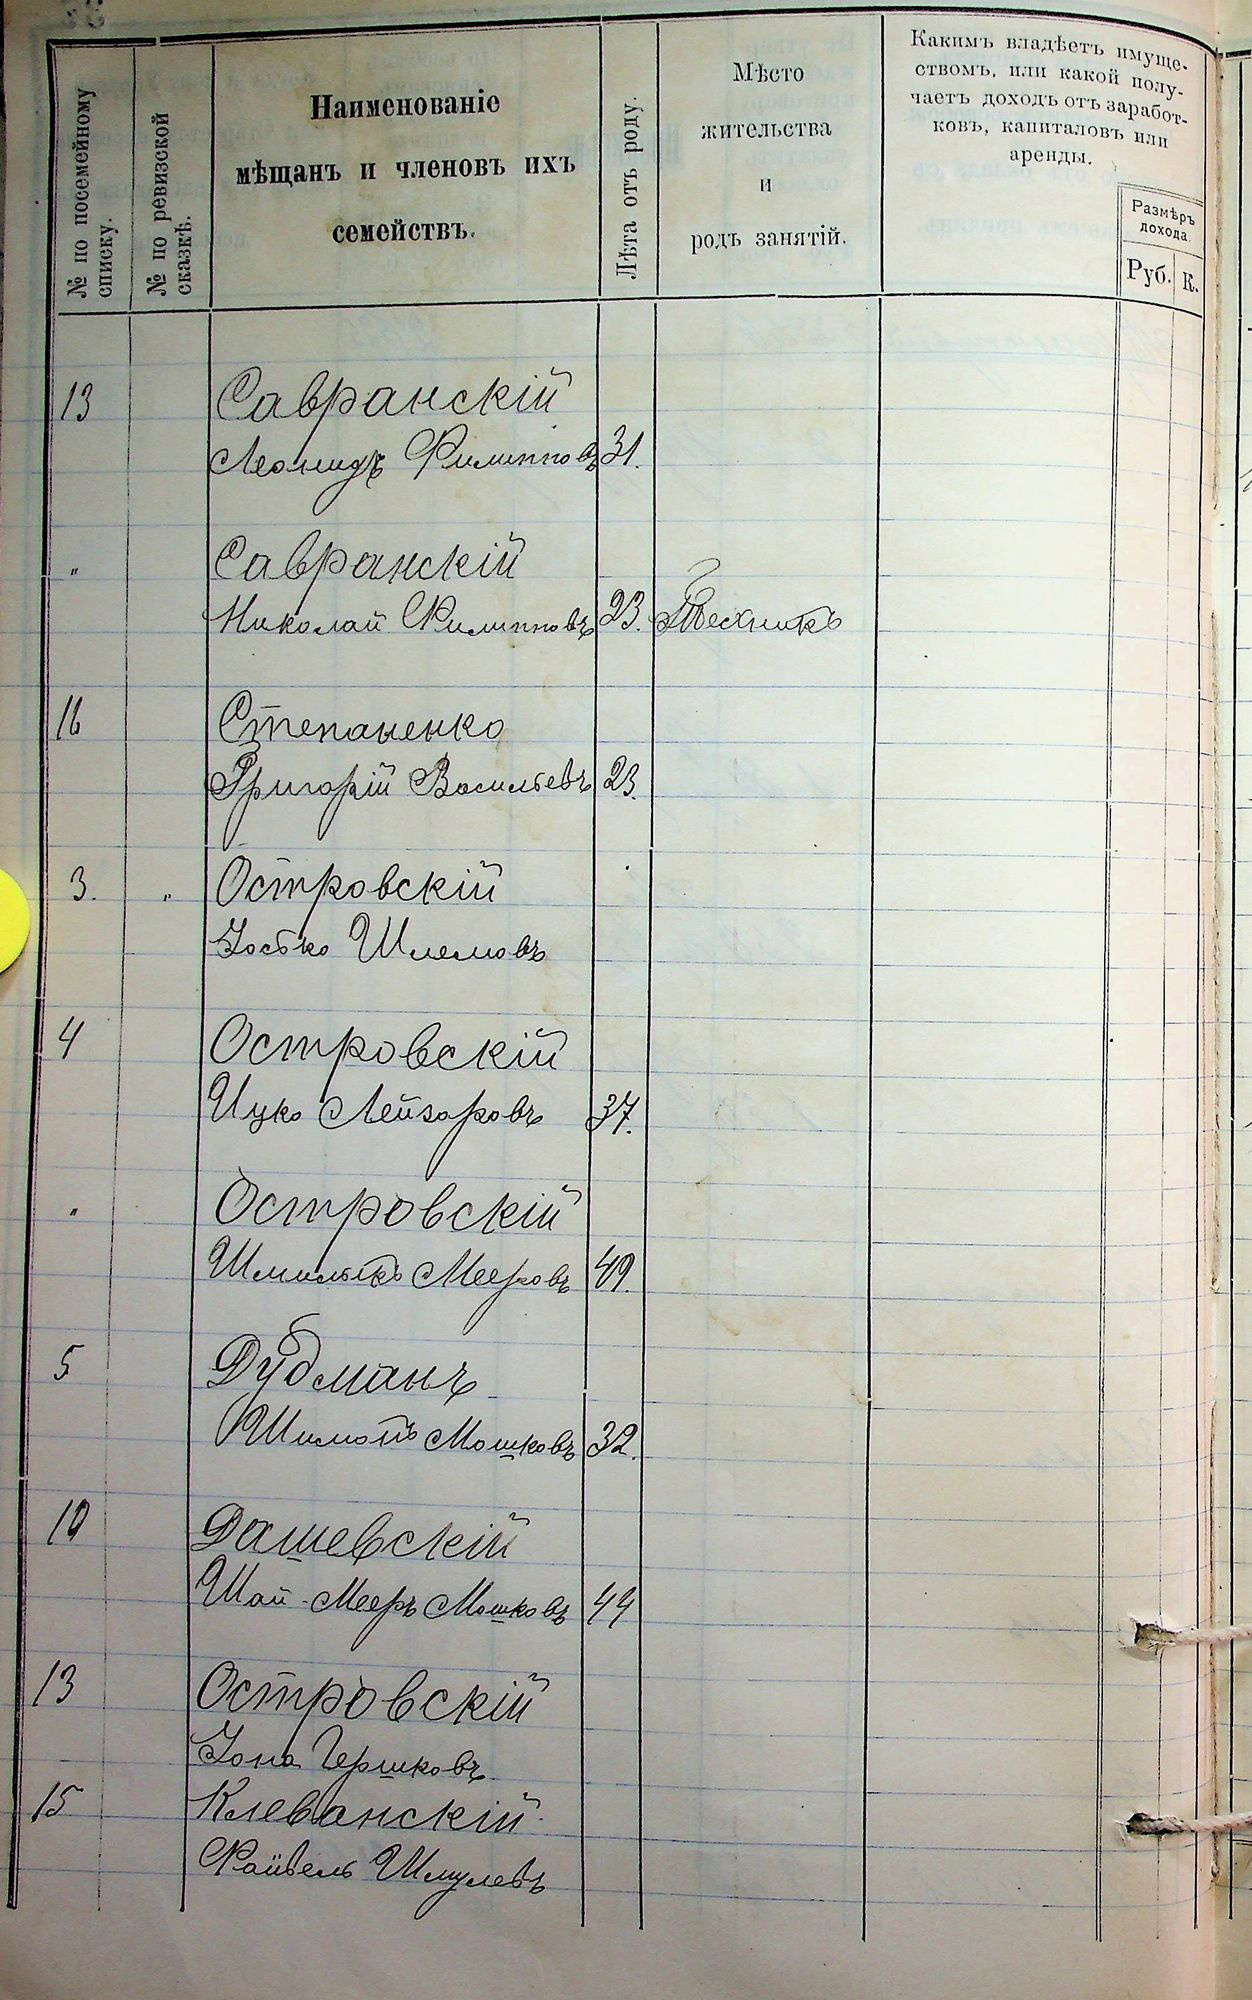 № по посемейному
списку.
№ по ревизской
сказкѣ.
Наименованіе
мѣщанъ и членовъ ихъ
семействъ.
Лѣта отъ роду.
Мѣсто
жительства
и
родъ занятій.
Какимъ владѣетъ имуще-
ствомъ, или какой полу-
чаетъ доходъ отъ заработ-
ковъ, капиталовъ или
аренды.
Размѣръ
дохода.
Руб. К.
13 Савранскій
Леонидъ Филипповъ 31.
„ Савранскій
Николай Филипповъ 23. Техникъ
16 Степаненко
Григорій Васильевъ 23.
3. „ Островскій
Іосько Шлемовъ
4 Островскій
Ицко Лейзоровъ 37.
„ Островскій
Шмилыкъ Мееровъ 49.
5 Дудманъ
Мошковъ 32.
10 Дашевскій
Шай-Мееръ Мошковъ 44
13 Островскій
Іона Гершковъ
15 Клеванскій
Файвель Шмулевъ